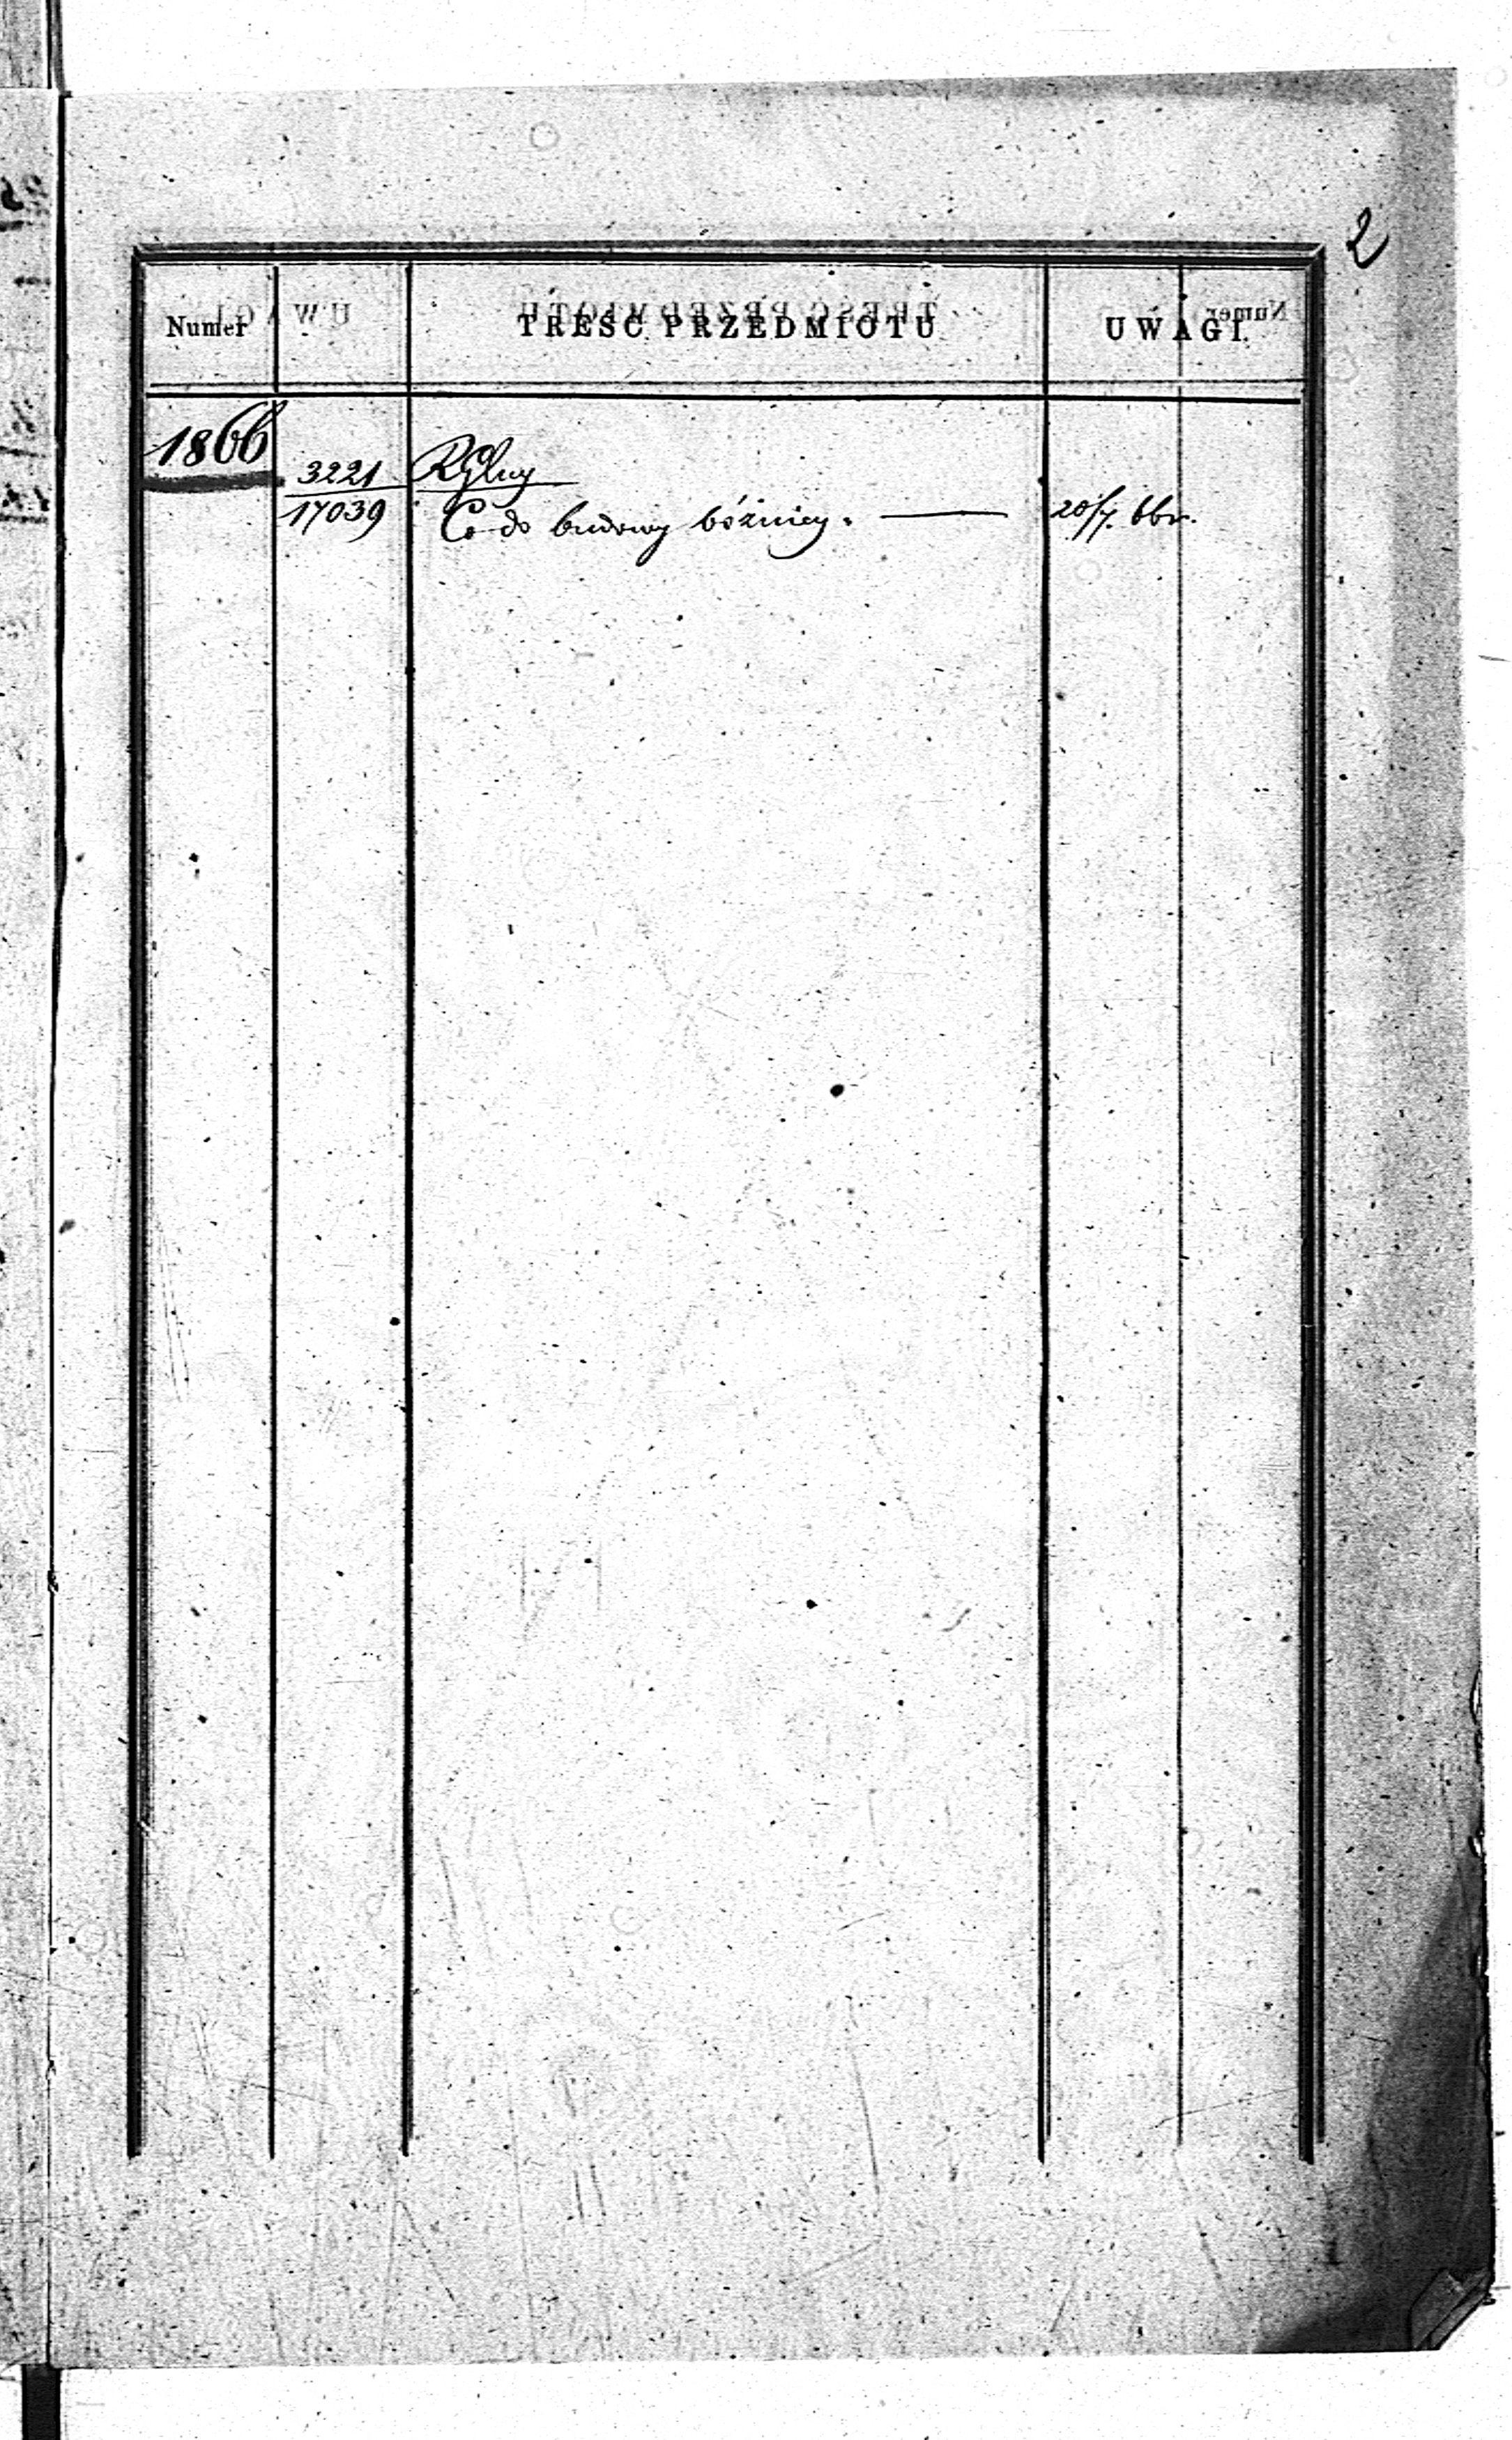 2
Numer TREŚĆ PRZEDMIOTU UWAGI.
1866
3221
17039 Co do budowy bóżnicy. — 20/7. 66r.